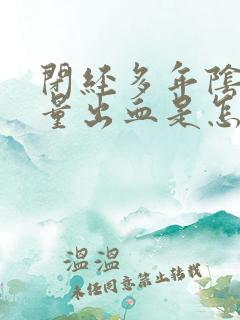 閉經多年陰
量出血是怎
溫溫
未经同意禁止转载